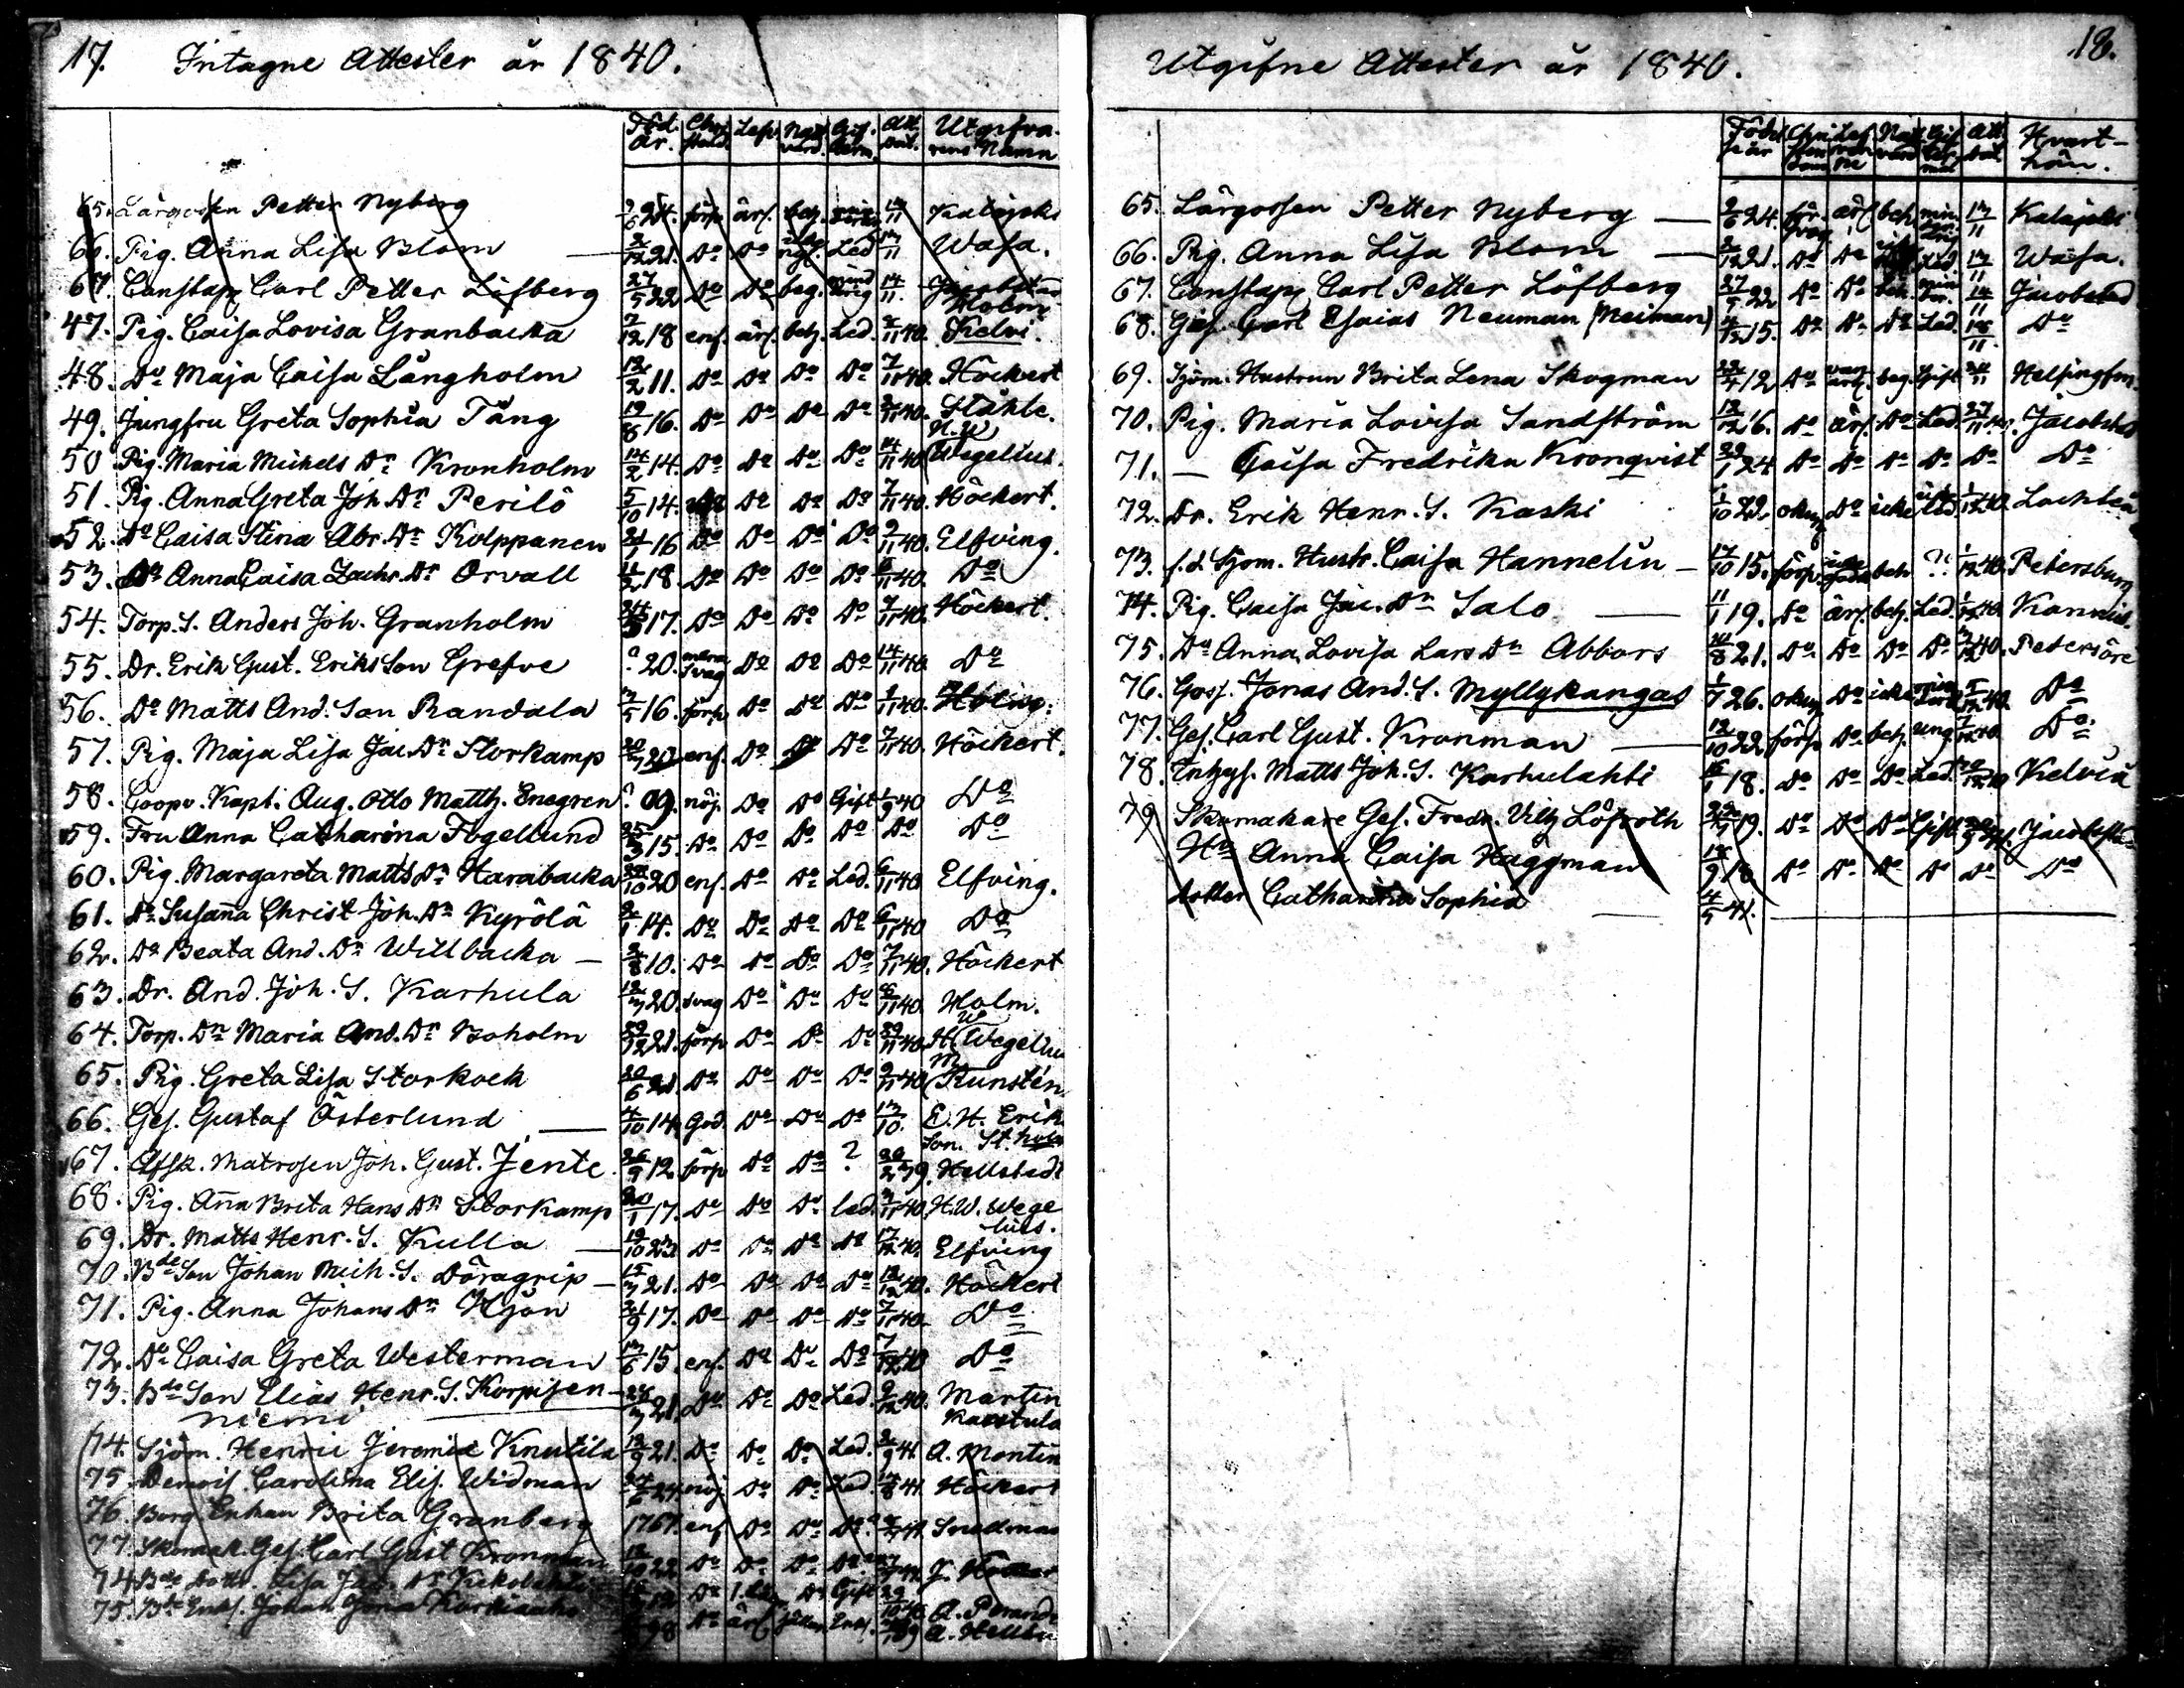 17. Intagne Attester år 1840.
Föd. år. Christ. Lefv. Nattvard. Gift. Att. dat. Utgifvarens Namn
65. Lärgossen Petter Nyberg 2/6 24. förs. ärl. beg. 14/11 Kalajoki
66. Pig. Anna Lisa Blom — 2/12 21. Do Do Led 14/11 Wasa.
67. Constap. Carl Petter Löfberg 27/5 22 Do Do beg. 14/11.
47. Pig. Caisa Lovisa Granbacka 7/12 18 enf. ärl. beg. Led. 2/11 40. Kelvi.
48. Do Maja Caisa Långholm 12/2 11. Do Do Do Do 7/11 40. Höckert
49. Jungfru Greta Sophia Tång 19/8 16. Do Do Do Do 2/11 40. Ståhle.
50 Pig. Maria Michels Dr Kronholm 14/2 14. Do Do Do Do 14/11 40 H.W Wegelius.
51. Pig. Anna Greta Joh. Dr Perilö 5/10 14. Do Do Do 7/11 40. Höckert.
52. Do Caisa Stina Abr. Dr Kolppanen 21/1 16 Do Do Do Do 9/11 40. Elfving.
53. Do Anna Caisa Zachr. Dr Orvall 11/2 18. Do Do Do Do 6/11 40. Do
54. Torp. S. Anders Joh. Granholm 24/3 17. Do Do Do Do 7/11 40. Höckert.
55. Dr. Erik Gust. Eriksson Grefve ? 20. svag Do Do Do 14/11 40. Do
56. Do Matts And. Son Randala 3/5 16. förs. Do Do Do 2/11 40.
57. Pig. Maja Lisa Jac. Dr Storkamp 20/3 20 enf. Do Do Do 7/11 40. Höckert.
58. Coopv. Kapt. Aug. Otto Matth. Enegren ? 09. nöj. Do Do Gift 1/9 40 Do
59. Fru Anna Catharina Fogellund 25/3 15. Do Do Do Do Do Do
60. Pig. Margareta Matts Dr Harabacka 22/10 20 enf. Do Do Led. 6/11 40 Elfving.
61. Do Susanna Christ. Joh. Dr Kyrölä 2/1 14. Do Do Do Do 6/11 40 Do
62. Do Beata And. Dr Willbacka — 2/8 10. Do Do Do Do 7/11 40. Höckert
63. Dr. And. Joh. S. Karhula 12/3 20. svag Do Do Do 8/11 40. Holm.
64. Torp. Dr Maria And. Dr Boholm 29/12 21. förs Do Do Do 29/11 40. H W Wegelius
65. Pig. Greta Lisa Storkock 20/6 21. Do Do Do Do 9/11 40 M Kunstén
66. Ges. Gustaf Österlund — 4/10 14. God. Do Do Do 13/10. E. H. Erikson. St. holm
67. Afsk. Matrosen Joh. Gust. Jente 26/9 12. förs Do Do ? 20/2 39. Hellstedt
68. Pig. Anna Brita Hans Dr Storkamp 20/1 17. Do Do Do led. 3/11 40. H.W. Wegelius.
69. Dr. Matts Henr. S. Kulla — 19/10 23. Do Do Do Do 17/12 40. Elfving
70. Bde Son Johan Mich. S. Döragrip — 15/3 21. Do Do Do Do 12/12 40. Höckert
71. Pig. Anna Johans Dr Hjön 21/9 17. Do Do Do Do 7/11 40. Do
72. Do Caisa Greta Westerman 13/6 15. enf. Do Do Do 7/12 40 Do
73. Bde Son Elias Henr. S. Korpisen- 28/3 21. Do Do Do Led. 9/12 40. Martin
niemi Karstula
74. Sjöm. Henric Jeremia Knutila 12/9 21. Do Do Do Led. 2/9 41. A. Montin
75 Demois. Carolina Elis. Widman 24/6 24. nöj. Do Do Led. 14/8 41. Höckert
76. Borg. Enkan Brita Granberg 1767. enf Do Do Snellman
77. Skomak. Ges. Carl Gust Kronman 12/10 22 Do Do Do
74 Bde Dottr. Lisa Do Gift
75. Bde Enkl. Johan 98 Do ärl.
Utgifne Attester år 1840. 18.
Födelseår Christendom Lefverne Nattvard Att. dat Hvarthän.
65. Lärgossen Petter Nyberg — 2/6 24. ärl beg. 13/11 Kalajoki
66. Pig. Anna Lisa Blom — 2/12 21. Do Do Led 13/11 Wasa.
67. Constap. Carl Petter Löfberg 27/5 22 Do Do 14/11 Jacobstad
68. Ges. Carl Esaias Neuman (Neiman) 4/12 15. Do Do Do Led. 18/11. Do
69. Sjöm. Hustrun Brita Lena Skogman 22/4 12 Do beg. Gift 20/11 Helsingfors
70. Pig. Maria Lovisa Sandström 12/12 16. Do ärl. Do Led. 27/11 40. Jacobstad
71. — Caisa Fredrika Kronqvist 29/1 24 Do Do Do Do Do Do
72. Dr. Erik Henr. S. Kaski 1/10 22 okun Do icke 1/12 40. Lochteå
73. f.d. Sjöm. Hustr. Caisa Hannelin — 17/10 15. förs. beg ? 1/12 40. Petersburg
74. Pig. Caisa Jac. Dr Salo — 11/1 19. Do ärl. beg. Led. 1/12 40. Kannus.
75. Do Anna Lovisa Lars Dr Abbors 21/8 21. Do Do Do Do 3/12 40. Petersöre
76. Goss. Jonas And. S. Myllykangas 1/7 26. okun Do icke 5/12 40. Do
77. Ges. Carl Gust. Kronman — 12/10 22 förs Do beg. ung. 7/12 40 Do
78. Matts Joh. S. Karhulahti 18. Do Do Do Led. Kelviå
79 Skomakare Ges. Fredr. Vilh Löfroth 19. Do Do Do Gift Jacobstad
Hu Anna Caisa Häggman 18/9 18 Do Do Do Do Do Do
dotter Catharina Sophia — 4/5 41.